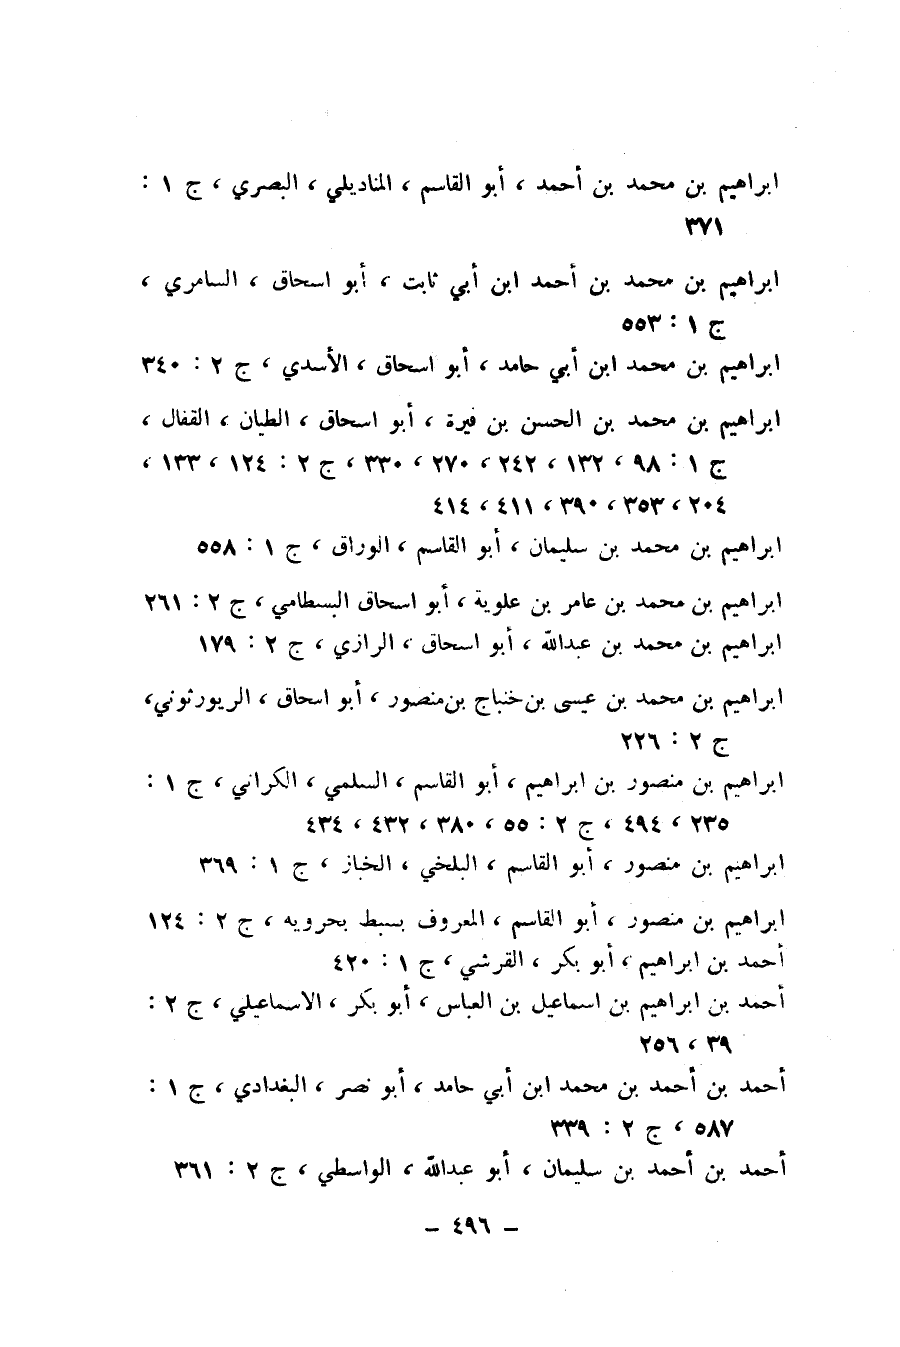 ابراهيم بن محمد بن أحمد ، أبو القاسم ، المناديلي ، البصري ، ج ١ :
٣٧١
ابراهيم بن محمد بن أحمد ابن أبي ثابت ، أبو اسحاق ، السامري ،
ج ١ : ٥٥٣
ابراهيم بن محمد ابن أبي حامد ، أبو اسحاق ، الأسدي ، ج ٢ : ٣٤٠
ابراهيم بن محمد بن الحسن بن فيرة ، أبو اسحاق ، الطيان ، القفال ،
ج ١ : ٩٨ ، ١٣٢ ، ٢٤٢ ، ٢٧٠ ، ٣٣٠ ، ج ٢ : ١٢٤ ، ١٣٣ ،
٢٠٤ ، ٣٥٣ ، ٣٩٠ ، ٤١١ ، ٤١٤
ابراهيم بن محمد بن سليمان ، أبو القاسم ، الوراق ، ج ١ : ٥٥٨
ابراهيم بن محمد بن عامر بن علوية ، أبو اسحاق البسطامي ، ج ٢ : ٢٦١
ابراهيم بن محمد بن عبدالله ، أبو اسحاق ، الرازي ، ج ٢ : ١٧٩
ابراهيم بن محمد بن عيسى بن خنباج بن منصور ، أبو اسحاق ، الريورثوني،
ج ٢ : ٢٢٦
ابراهيم بن منصور بن ابراهيم ، أبو القاسم ، السلمي ، الكراني ، ج ١ :
٢٣٥ ، ٤٩٤ ، ج ٢ : ٥٥ ، ٣٨٠ ، ٤٣٢ ، ٤٣٤
ابراهيم بن منصور ، أبو القاسم ، البلخي ، الخباز ، ج ١ : ٣٦٩
ابراهيم بن منصور ، أبو القاسم ، المعروف بسبط بحرويه ، ج ٢ : ١٢٤
أحمد بن ابراهيم ، أبو بكر ، القرشي ، ج ١ : ٤٢٠
أحمد بن ابراهيم بن اسماعيل بن العباس ، أبو بكر ، الاسماعيلي ، ج ٢ :
٣٩ ، ٢٥٦
أحمد بن أحمد بن محمد ابن أبي حامد ، أبو نصر ، البغدادي ، ج ١ :
٥٨٧ ، ج ٢ : ٣٣٩
أحمد بن أحمد بن سليمان ، أبو عبدالله ، الواسطي ، ج ٢ : ٣٦١
– ٤٩٦ –